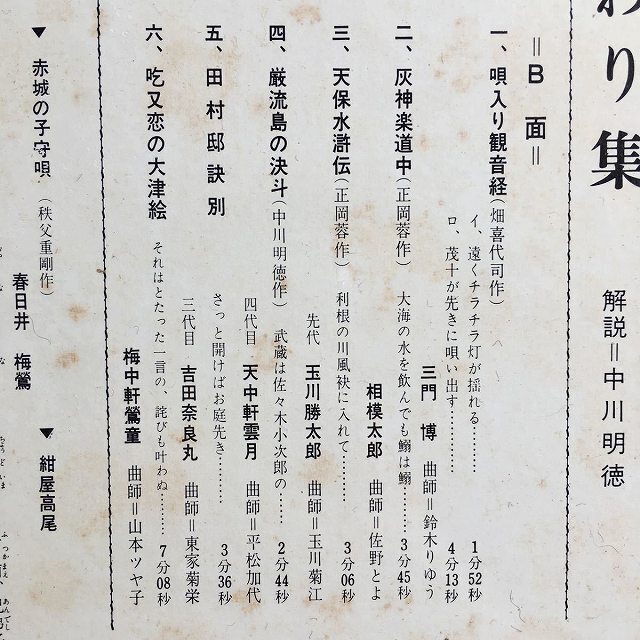 わり集
解説＝中川明徳
＝B面＝
一、唄入り観音経（畑喜代司作）
イ、遠くチラチラ灯が揺れる………　1分52秒
ロ、茂十が先きに唄い出す…………　4分13秒
三門　博　曲師＝鈴木りゆう
二、灰神楽道中（正岡蓉作）　大海の水を飲んでも鰯は鰯………　3分45秒
相模太郎　曲師＝佐野とよ
三、天保水滸伝（正岡蓉作）　利根の川風袂に入れて………　3分06秒
先代　玉川勝太郎　曲師＝玉川菊江
四、厳流島の決斗（中川明徳作）　武蔵は佐々木小次郎の……　2分44秒
四代目　天中軒雲月　曲師＝平松加代
五、田村邸訣別　さっと開けばお庭先き………　3分36秒
三代目　吉田奈良丸　曲師＝東家菊栄
六、吃又恋の大津絵　それはとたった一言の、詫びも叶わぬ………　7分08秒
梅中軒鶯童　曲師＝山本ツヤ子
▼赤城の子守唄（秩父重剛作）
春日井　梅鶯
▼紺屋高尾